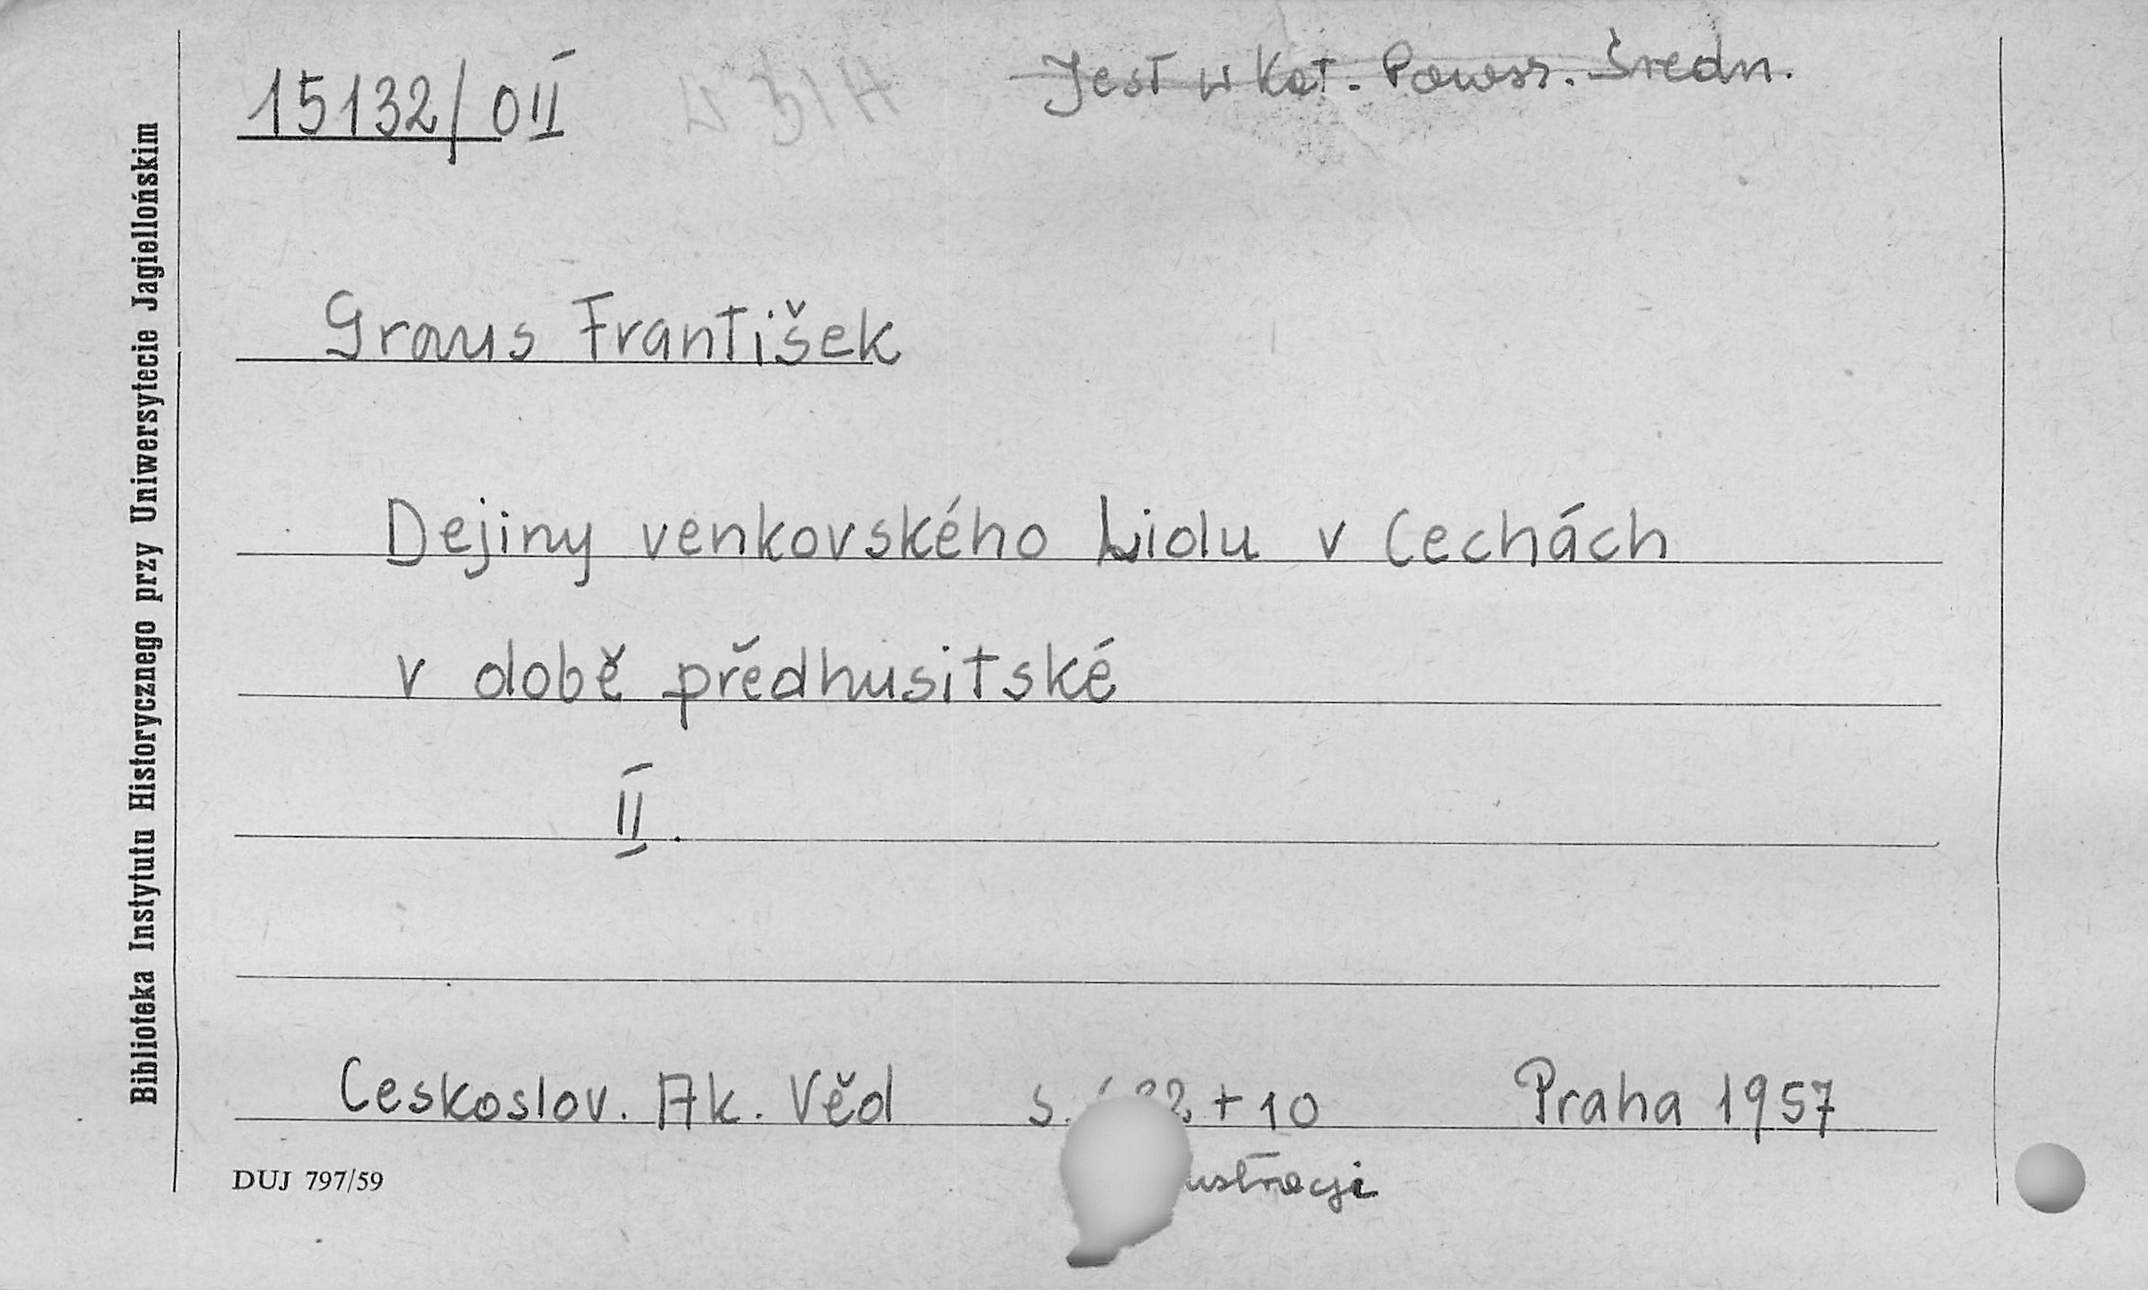 15132/0II
Jest w Kat. Powsz. Średn.
Biblioteka Instytutu Historycznego przy Uniwersytecie Jagiellońskim
Graus František
Dejiny venkovského Lidu v Cechách
v době předhusitské
II.
Ceskoslov. Ak. Věd s. + 10 Praha 1957
DUJ 797/59